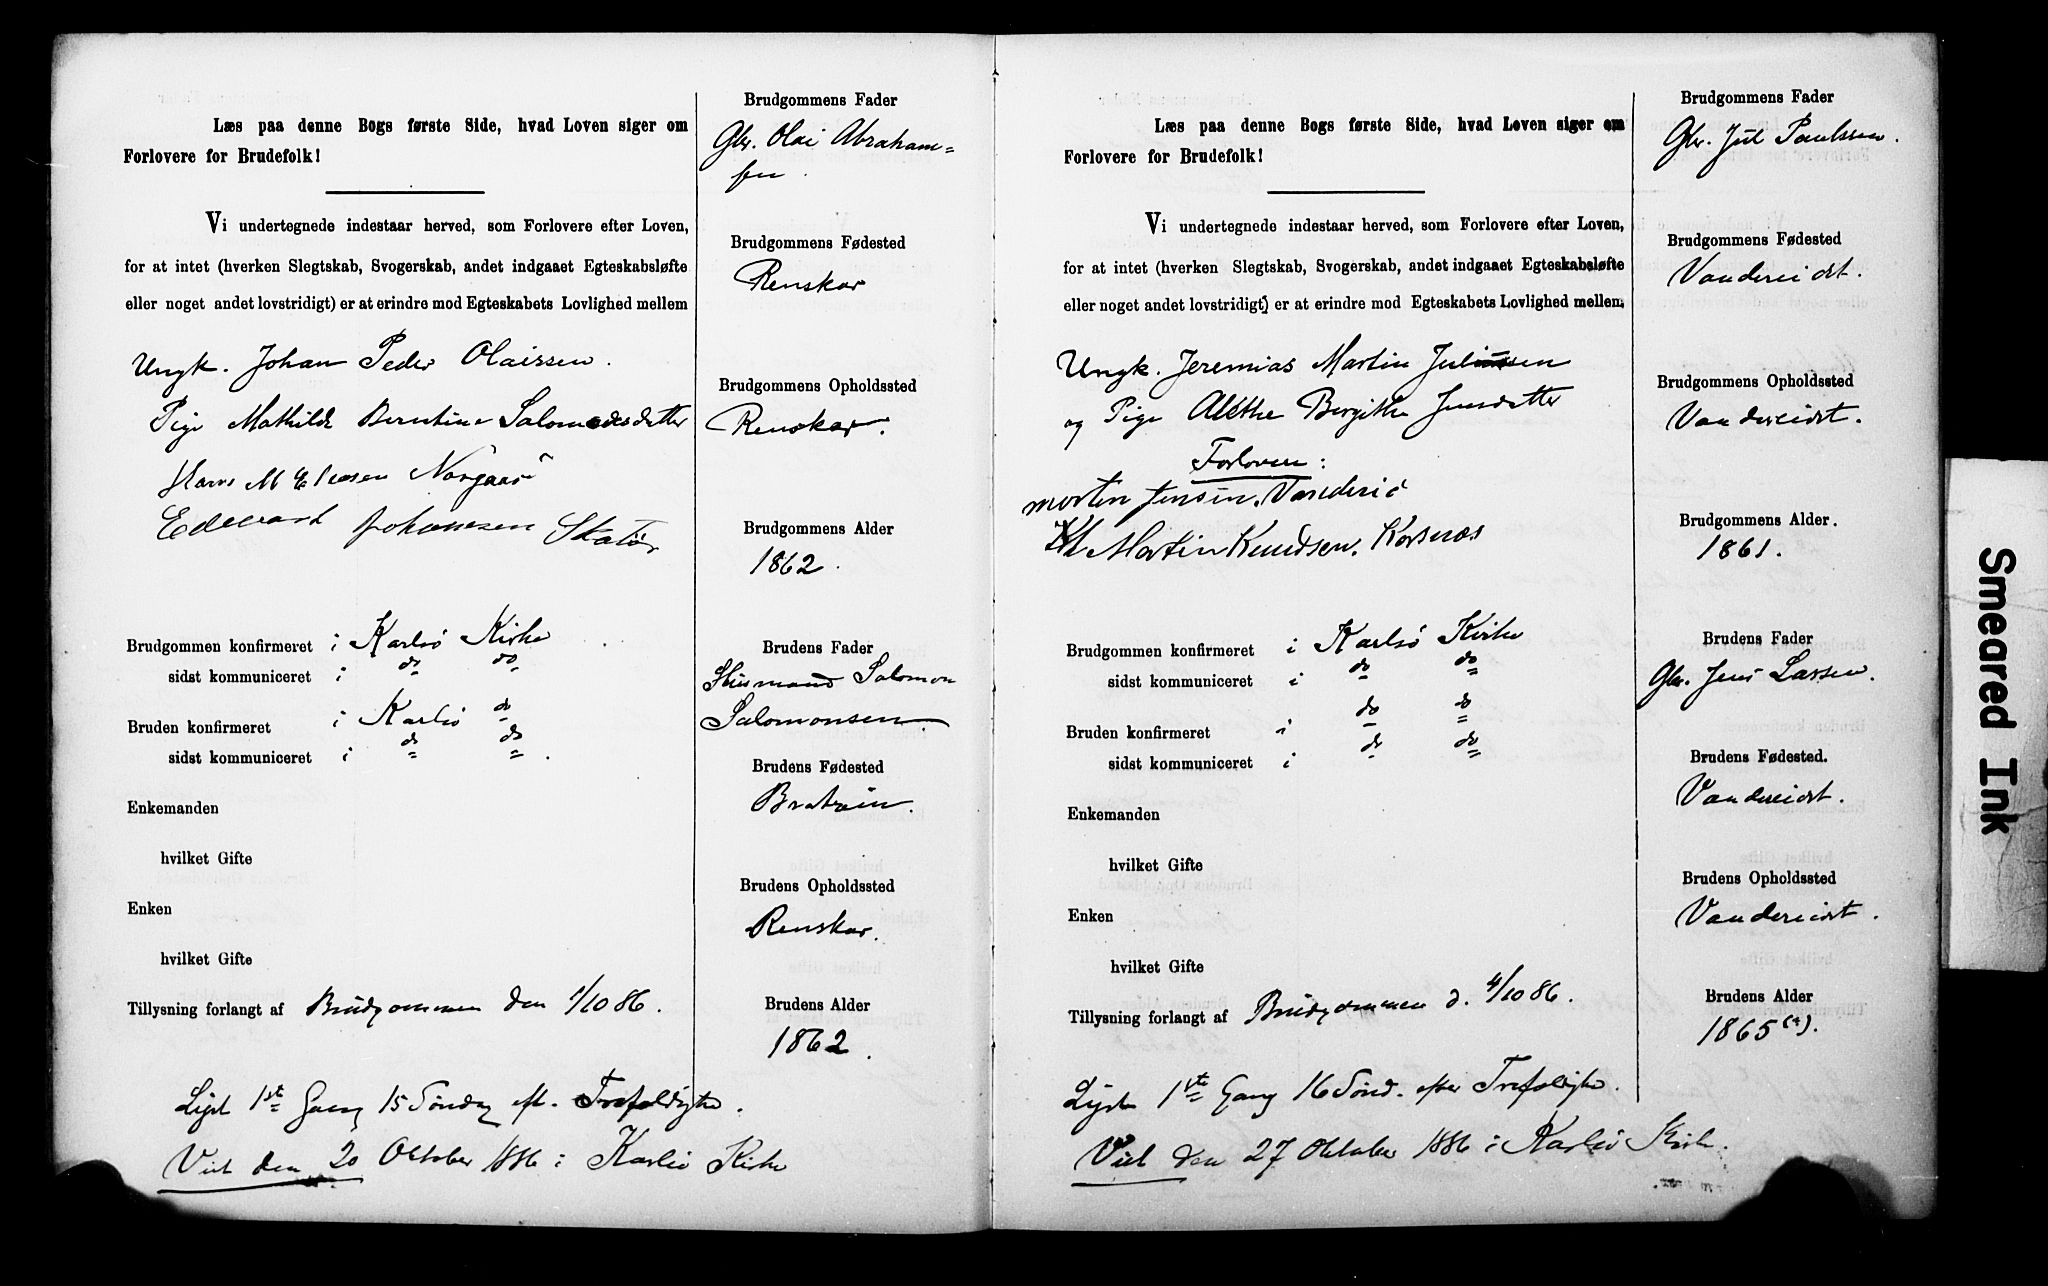 Læs paa denne Bogs første Side, hvad Loven siger om
Forlovere for Brudefolk!
Vi undertegnede indestaar herved, som Forlovere efter Loven,
for at intet (hverken Slegtskab, Svogerskab, andet indgaaet Egteskabsløfte
eller noget andet lovstridigt) er at erindre mod Egteskabets Lovlighed mellem
Ungk. Johan Peder Olaissen.
Pige Mathilde Berntine Salomonsdatter
Hans M Norgaard
Edevart Johannesen
Brudgommen konfirmeret i Karlsö Kirke
sidst kommuniceret i do do
Bruden konfirmeret i Karlsö do
sidst kommuniceret i do do.
Enkemanden
hvilket Gifte
Enken
hvilket Gifte
Tillysning forlangt af Brudgommen den 1/10 86.
Lyst 1ste Gang 15 Söndag eft. Trefoldighe.
Viet den 20 Oktober 1886 i Karlsö Kirke
Brudgommens Fader
Gbr. Olai Abraham=
sen.
Brudgommens Fødested
Renskar
Brudgommens Opholdssted
Renskar.
Brudgommens Alder
1862.
Brudens Fader
Husmand Salomon
Salomonsen.
Brudens Fødested
Brudens Opholdssted
Renskar.
Brudens Alder
1862.
Læs paa denne Bogs første Side, hvad Loven siger om
Forlovere for Brudefolk!
Vi undertegnede indestaar herved, som Forlovere efter Loven,
for at intet (hverken Slegtskab, Svogerskab, andet indgaaet Egteskabsløfte
eller noget andet lovstridigt) er at erindre mod Egteskabets Lovlighed mellem
Ungk. Jeremias Martin
og Pige Alethe Bergithe Jensdatter
Forlovere:
Morten Jensen. Vandereid
Martin Knudsen. Korsnæs
Brudgommen konfirmeret i Karlsö Kirke
sidst kommuniceret i do do
Bruden konfirmeret i do do
sidst kommuniceret i do do
Enkemanden
hvilket Gifte
Enken
hvilket Gifte
Tillysning forlangt af Brudgommen d. 4/10 86.
Lyst 1ste Gang 16 Sönd. efter Trefoldighe.
Viet den 27 Oktober 1886 i Karlsö Kirke.
Brudgommens Fader
Gbr. Jul Paulssen.
Brudgommens Fødested
Vandereidet.
Brudgommens Opholdssted
Vandereidet.
Brudgommens Alder.
1861.
Brudens Fader
Gbr. Jens Lassen.
Brudens Fødested.
Vandereidet.
Brudens Opholdssted
Vandereidet.
Brudens Alder
1865
Smeared Ink